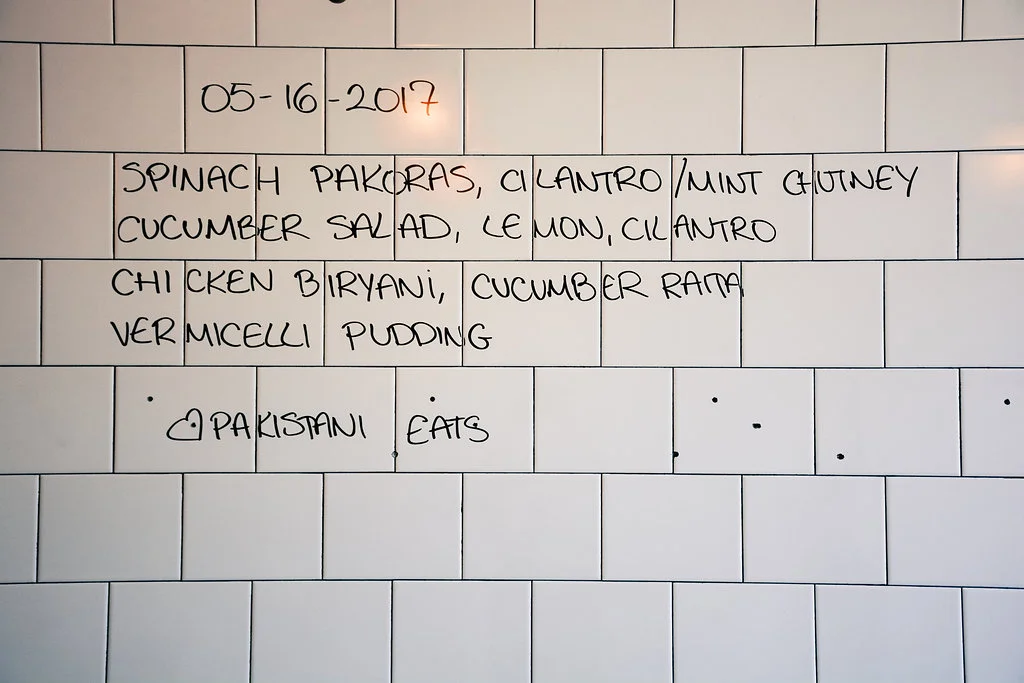 05-16-2017
SPINACH PAKORAS, CILANTRO/MINT CHUTNEY
CUCUMBER SALAD, LEMON, CILANTRO
CHICKEN BIRYANi, CUCUMBER RAITA
VERMICELLI PUDDING
♡PAKISTANI EATS